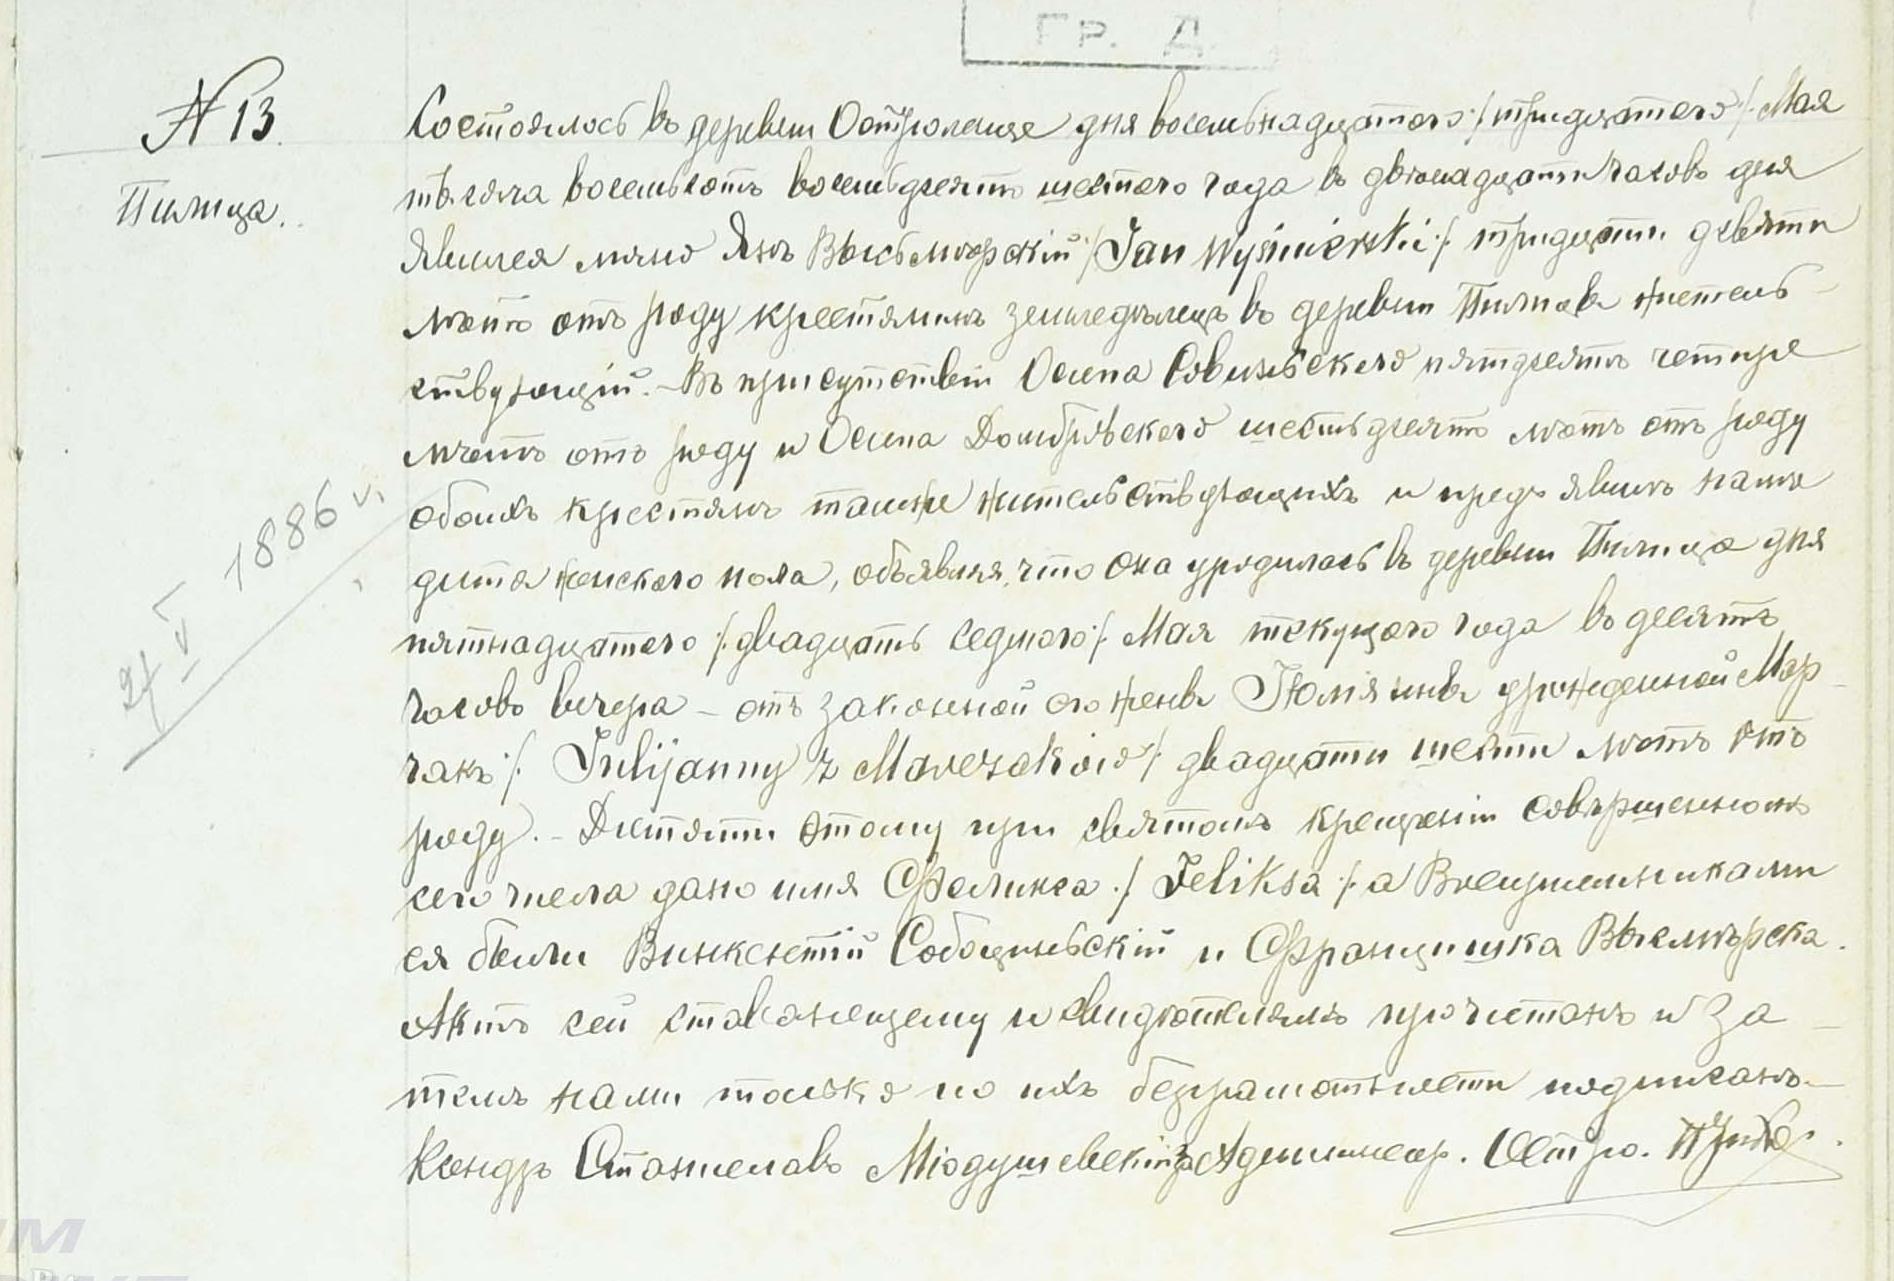 Гр. Д
№ 13.
Пилица.
Состоялось въ деревни Остроленце дня восемьнадцатого /: тридцатого :/ Мая
тысяча восемьсотъ восемьдесятъ шестого года въ двенадцать часовъ дня
Явился лично Янъ Высьмерскій /: Jan Wyśmierski :/ тридцати девяти
летъ отъ роду крестянинъ земледелецъ въ деревни Пилице житель-
ствующій. - Въ присутствіи Осипа Совиньского пятдесятъ четыре
летъ отъ роду и Осипа Домбровского шестьдесятъ летъ отъ роду
обоихъ крестянъ тамже жительствующихъ и предъявилъ намъ
дитя женского пола, объявляя, что она уродилась въ деревни Пилица дня
пятнадцатого /: двадцать седмого :/ Мая текущого года въ десять
часовъ вечера - отъ законной его жены Юліянны урожденной Мар-
чакъ /: Julijanny z Marczaków :/ двадцати шести летъ отъ
роду. - Дитяти этому при святомъ крещеніи совершенномъ
сего числа дано имя Феликса /: Feliksa :/ а Воспріемниками
ея были Викентій Собоциньскій и Францишка Высмерска.
Актъ сей ставающему и свидетелямъ прочитанъ и за-
темъ нами только по ихъ безграмотности подписанъ.-
Ксендзъ Станиславъ Мюдушевскій Администр. Остро. Прих.
27 V 1886 г.